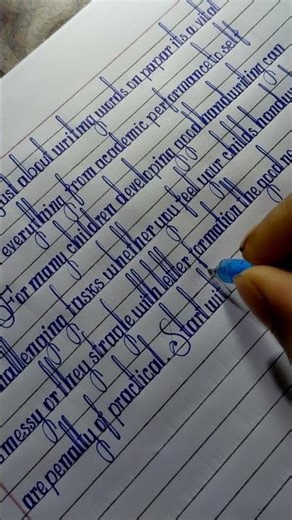 just about writing words on papar its a vital
everything from academic performance to self
For many children developing good handwriting can
hallenging tasks whether you feel your childs handw
messy or they stragle with letter formation the good ne
are penalty of practical. Start wit